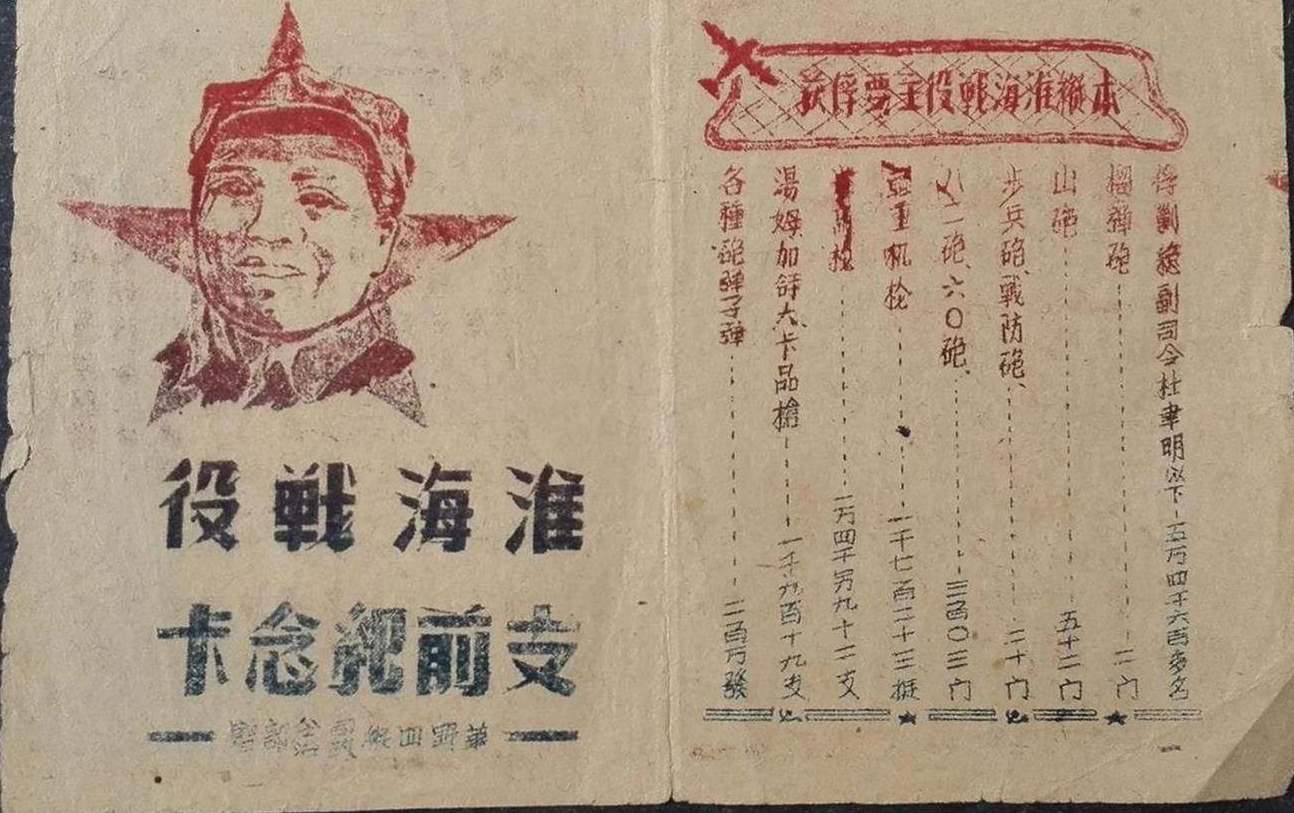 淮海戦役
支前紀念卡
華野四縱
本縱淮海戦役主要俘获
俘剿總副司令杜聿明以下-五万四千六百多名
榴弹砲……二门
山砲……五十二门
步兵砲、戰防砲、……二十门
八二砲、六〇砲、……三百〇三门
輕重机枪……一千七百二十三挺
枪……一万四千另九十二支
湯姆加訐大卡品槍……一千九百十九支
各種砲弹子弹……二百万發